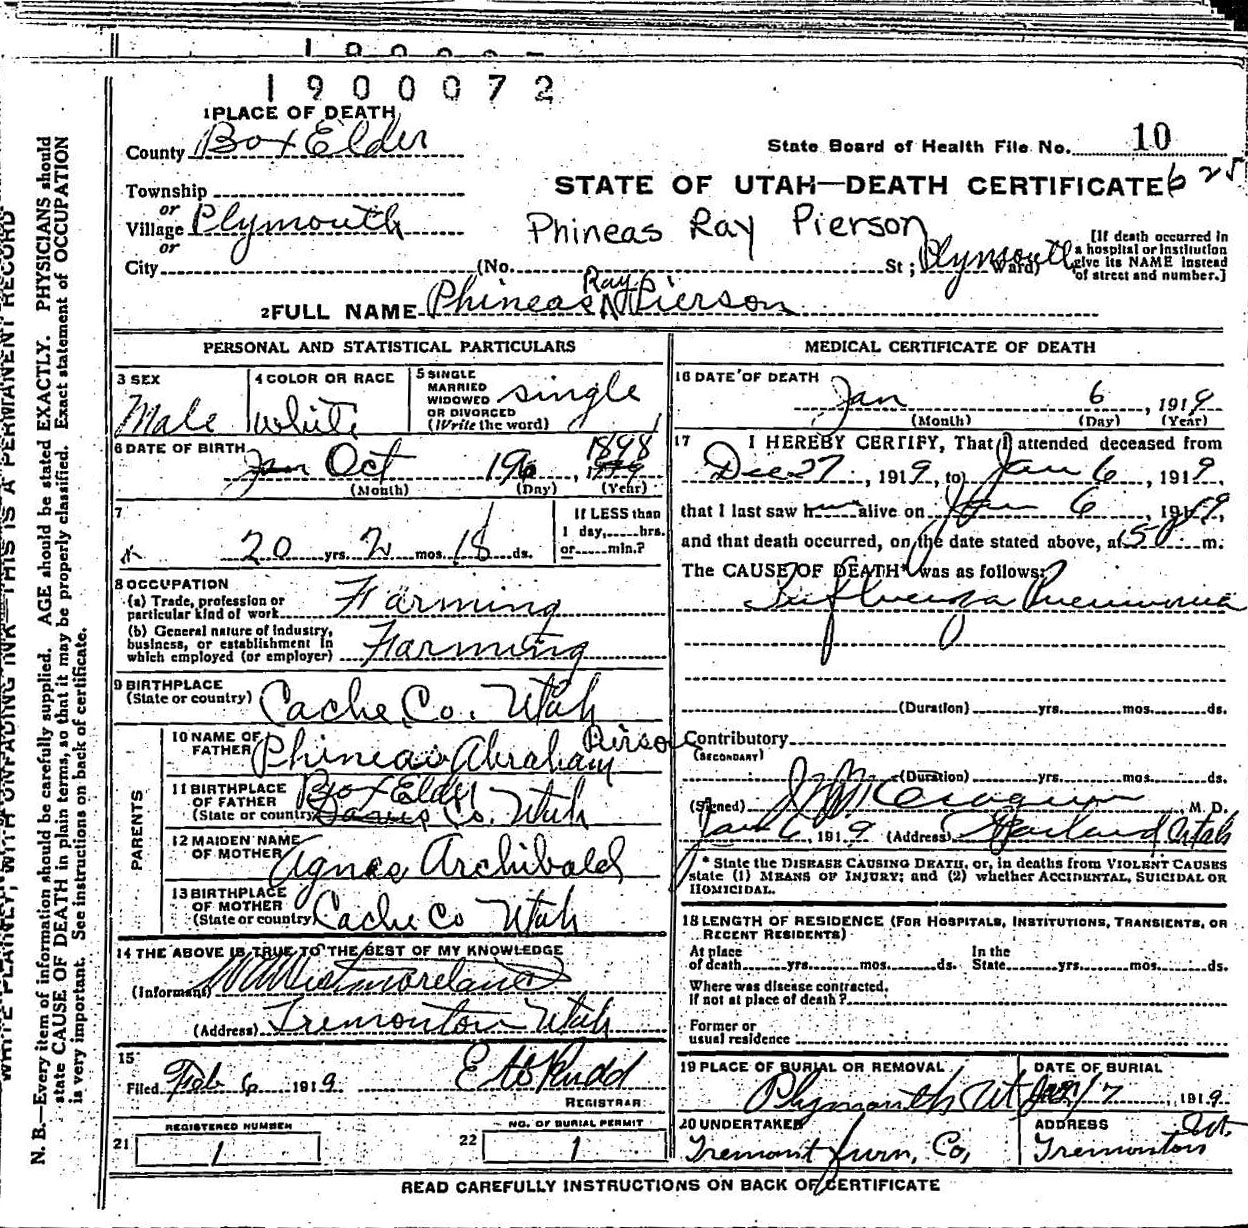 1900072
1 PLACE OF DEATH
County Box Elder
State Board of Health File No. 10
Township
STATE OF UTAH—DEATH CERTIFICATE 625
or
Village Plymouth
Phineas Ray Pierson
or
[If death occurred in a hospital or institution give its NAME instead of street and number.]
City (No. St; Plymouth Ward)
Ray
2 FULL NAME Phineas Pierson
PERSONAL AND STATISTICAL PARTICULARS
3 SEX Male
4 COLOR OR RACE White
5 SINGLE MARRIED WIDOWED OR DIVORCED (Write the word) single
6 DATE OF BIRTH Jan Oct 19 1898
(Month) (Day) (Year)
7
20 yrs. 2 mos. 18 ds.
If LESS than 1 day,......hrs. or......min.?
8 OCCUPATION
(a) Trade, profession or particular kind of work Farming
(b) General nature of industry, business, or establishment in which employed (or employer) Farming
9 BIRTHPLACE
(State or country) Cache Co. Utah
PARENTS
10 NAME OF FATHER Phineas Abraham Pierson
11 BIRTHPLACE OF FATHER Box Elder
(State or country) Davis Co. Utah
12 MAIDEN NAME OF MOTHER Agnes Archibald
13 BIRTHPLACE OF MOTHER
(State or country) Cache Co Utah
14 THE ABOVE IS TRUE TO THE BEST OF MY KNOWLEDGE
(Informant) Westmoreland
(Address) Tremonton Utah
15
Filed Feb 6 1919. Rudd
REGISTRAR
REGISTERED NUMBER
21 1
NO. OF BURIAL PERMIT
22 1
MEDICAL CERTIFICATE OF DEATH
16 DATE OF DEATH
Jan 6, 1919
(Month) (Day) (Year)
17 I HEREBY CERTIFY, That I attended deceased from
Dec 27, 1919, to Jan 6, 1919
that I last saw h alive on Jan 6, 1919,
and that death occurred, on the date stated above, at m.
The CAUSE OF DEATH* was as follows:
Influenza Pneumonia
(Duration) yrs. mos. ds.
Contributory
(SECONDARY)
(Duration) yrs. mos. ds.
(Signed) M. D.
Jan 6, 1919 (Address) Garland Utah
* State the DISEASE CAUSING DEATH, or, in deaths from VIOLENT CAUSES
state (1) MEANS OF INJURY; and (2) whether ACCIDENTAL, SUICIDAL OR
HOMICIDAL.
18 LENGTH OF RESIDENCE (FOR HOSPITALS, INSTITUTIONS, TRANSIENTS, OR
RECENT RESIDENTS)
At place of death yrs. mos. ds. In the State yrs. mos. ds.
Where was disease contracted.
if not at place of death?
Former or
usual residence
19 PLACE OF BURIAL OR REMOVAL
Plymouth Ut
DATE OF BURIAL
Jan 7, 1919
20 UNDERTAKER
Tremont Furn, Co,
ADDRESS Ut.
Tremonton
READ CAREFULLY INSTRUCTIONS ON BACK OF CERTIFICATE
WRITE PLAINLY, WITH UNFADING INK—THIS IS A PERMANENT RECORD
N. B.—Every item of information should be carefully supplied. AGE should be stated EXACTLY. PHYSICIANS should
state CAUSE OF DEATH in plain terms, so that it may be properly classified. Exact statement of OCCUPATION
is very important. See instructions on back of certificate.